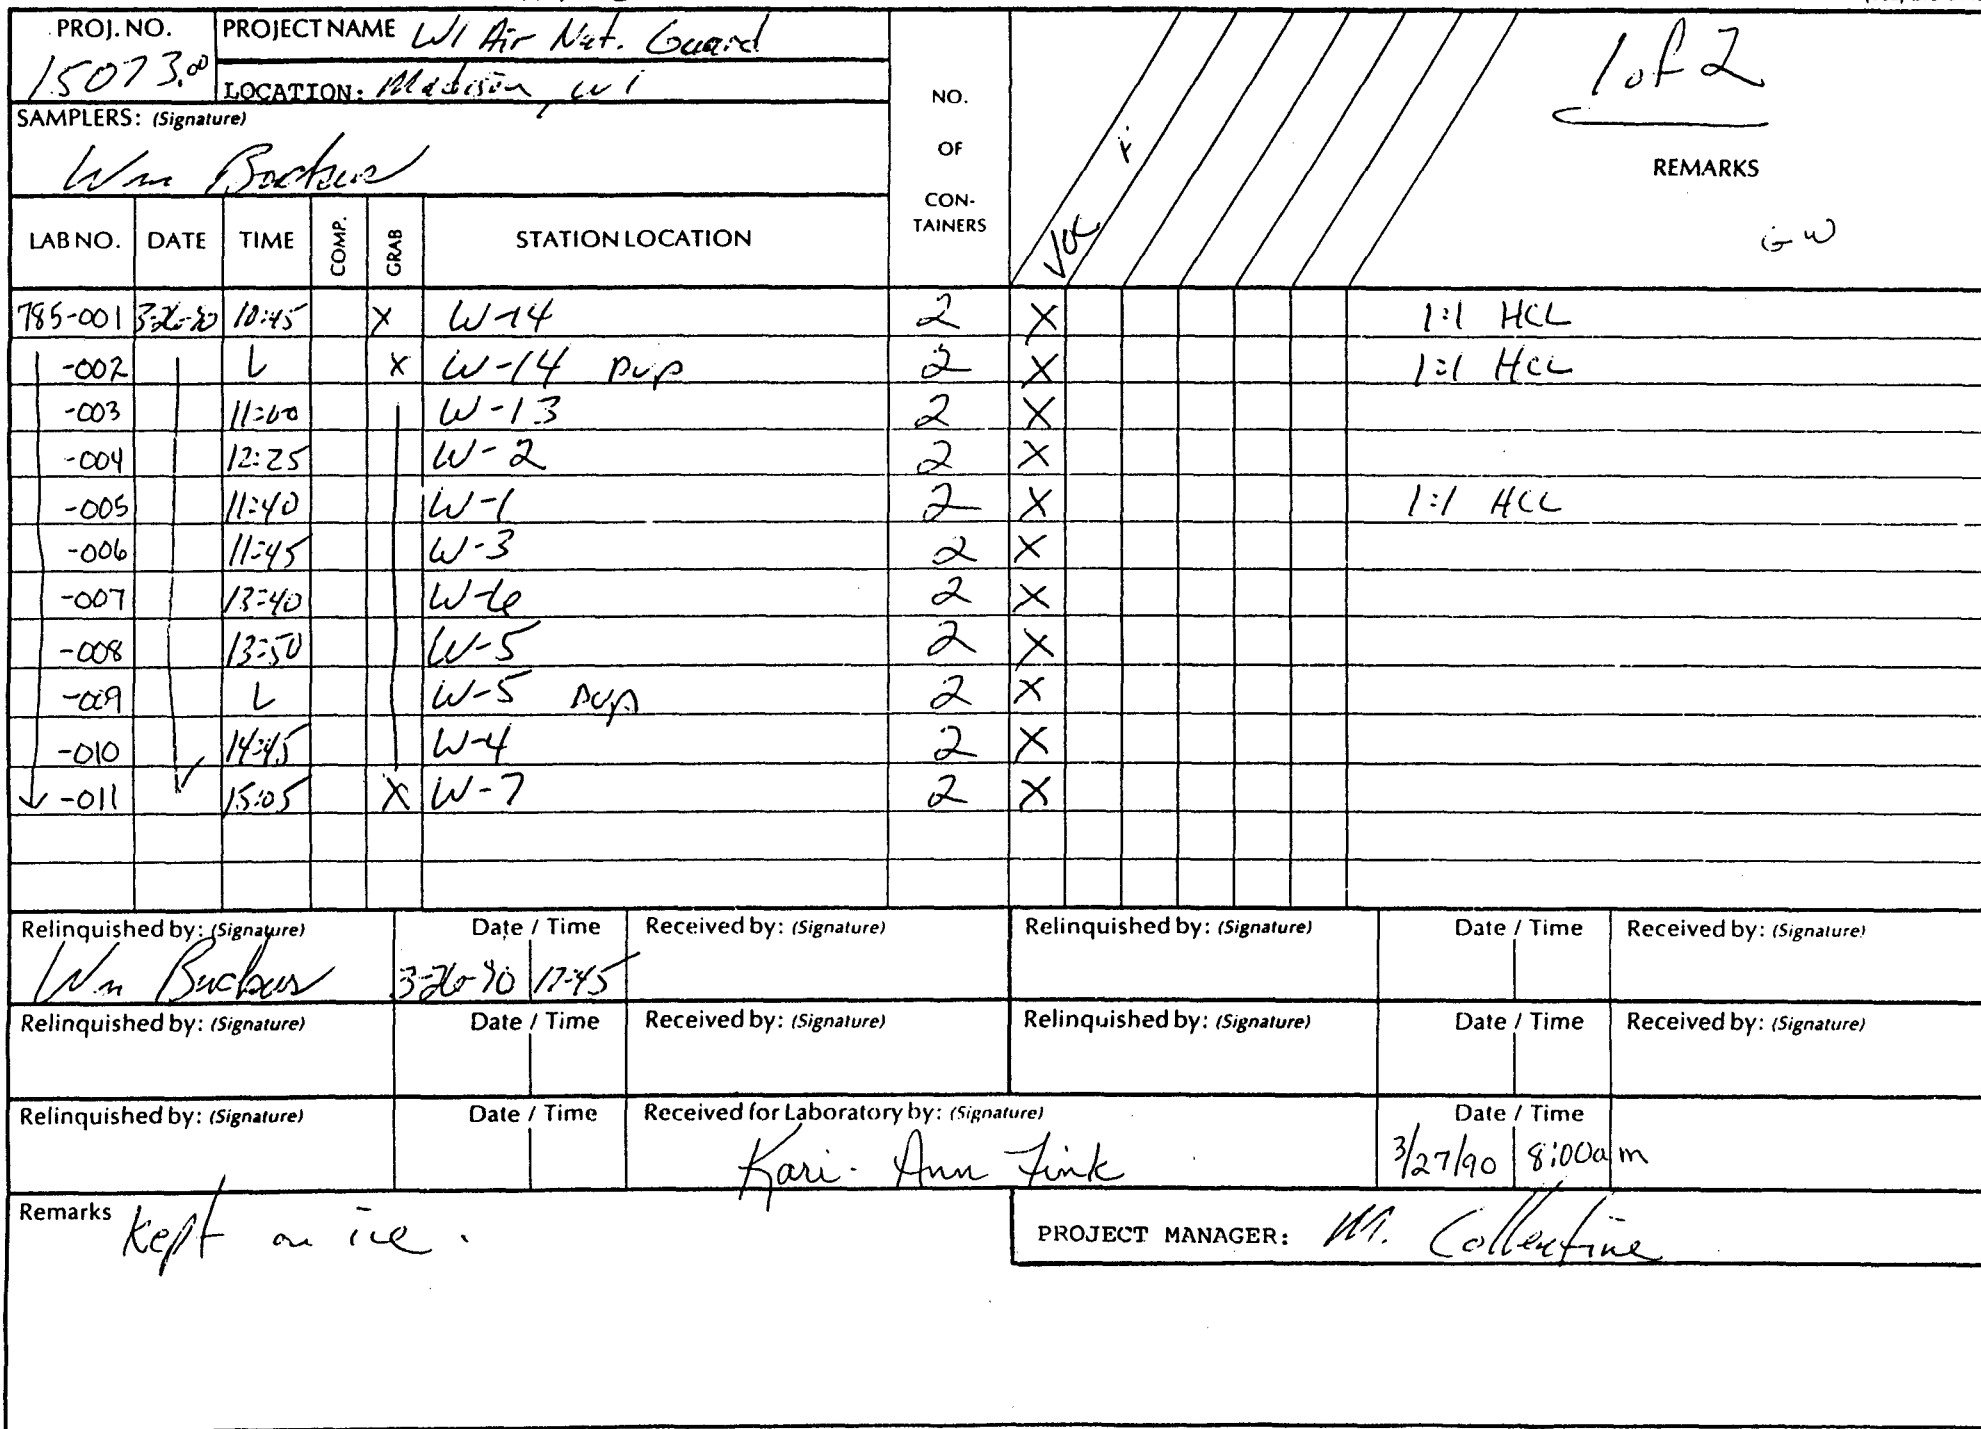 PROJ. NO. PROJECT NAME WI Air Nat. Guard
15073.00 LOCATION: Madison, WI
1 of 2
SAMPLERS: (Signature)
Wm Backus
NO. OF CON-TAINERS
VOC
REMARKS
GW
LAB NO. DATE TIME COMP. GRAB STATION LOCATION
785-001 3-26-90 10:45 X W-14 2 X 1:1 HCL
-002 X W-14 Dup 2 X 1:1 HCL
-003 11:00 W-13 2 X
-004 12:25 W-2 2 X
-005 11:40 W-1 2 X 1:1 HCL
-006 11:45 W-3 2 X
-007 13:40 W-6 2 X
-008 13:50 W-5 2 X
-009 W-5 Dup 2 X
-010 14:45 W-4 2 X
-011 15:05 X W-7 2 X
Relinquished by: (Signature) Date / Time Received by: (Signature) Relinquished by: (Signature) Date / Time Received by: (Signature)
Wm Backus 3-26-90 17:45
Relinquished by: (Signature) Date / Time Received by: (Signature) Relinquished by: (Signature) Date / Time Received by: (Signature)
Relinquished by: (Signature) Date / Time Received for Laboratory by: (Signature) Date / Time
Kari-Ann Fink 3/27/90 8:00am
Remarks Kept on ice.
PROJECT MANAGER: M. Collentine